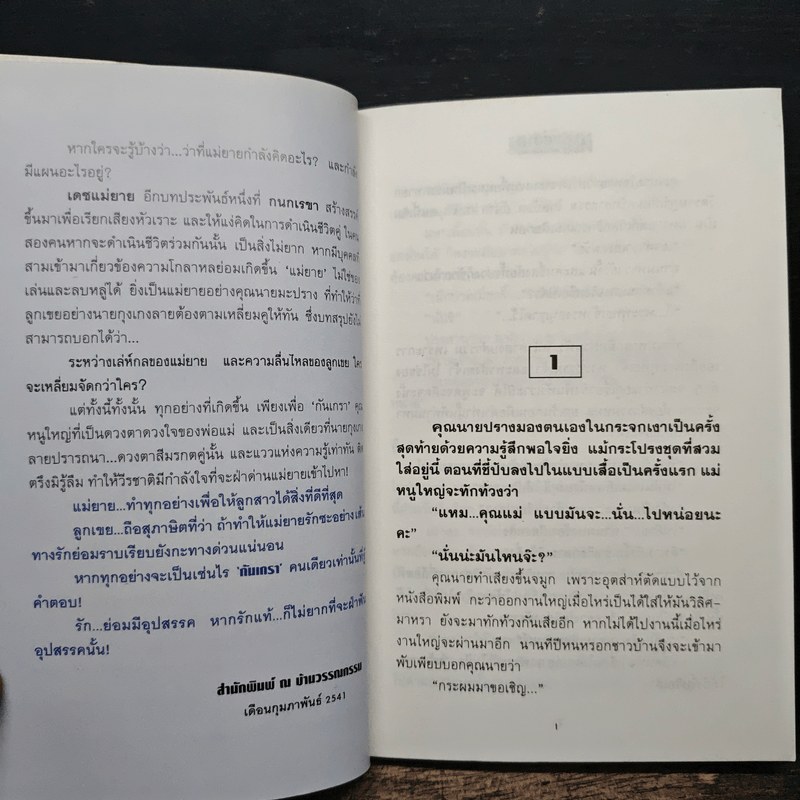 หากใครจะรู้บ้างว่า...ว่าที่แม่ยายกำลังคิดอะไร? และกำลัง
มีแผนอะไรอยู่?
เดชแม่ยาย อีกบทประพันธ์หนึ่งที่ กนกเรขา สร้างสรรค์
ขึ้นมาเพื่อเรียกเสียงหัวเราะ และให้แง่คิดในการดำเนินชีวิตคู่ ในคน
สองคนหากจะดำเนินชีวิตร่วมกันนั้น เป็นสิ่งไม่ยาก หากมีบุคคลที่
สามเข้ามาเกี่ยวข้องความโกลาหลย่อมเกิดขึ้น 'แม่ยาย' ไม่ใช่ของ
เล่นและลบหลู่ได้ ยิ่งเป็นแม่ยายอย่างคุณนายมะปราง ที่ทำให้ว่าที่
ลูกเขยอย่างนายกุงเกงลายต้องตามเหลี่ยมคูให้ทัน ซึ่งบทสรุปยังไม่
สามารถบอกได้ว่า...
ระหว่างเล่ห์กลของแม่ยาย และความลื่นไหลของลูกเขย ใคร
จะเหลี่ยมจัดกว่าใคร?
แต่ทั้งนี้ทั้งนั้น ทุกอย่างที่เกิดขึ้น เพียงเพื่อ 'กันเกรา' คุณ
หนูใหญ่ที่เป็นดวงตาดวงใจของพ่อแม่ และเป็นสิ่งเดียวที่นายกุงเกง
ลายปรารถนา...ดวงตาสีมรกตคู่นั้น และแววแห่งความรู้เท่าทัน ติด
ตรึงมิรู้ลืม ทำให้วีรชาติมีกำลังใจที่จะฝ่าด่านแม่ยายเข้าไปหา!
แม่ยาย...ทำทุกอย่างเพื่อให้ลูกสาวได้สิ่งที่ดีที่สุด
ลูกเขย...ถือสุภาษิตที่ว่า ถ้าทำให้แม่ยายรักซะอย่าง
ทางรักย่อมราบเรียบยังกะทางด่วนแน่นอน
หากทุกอย่างจะเป็นเช่นไร 'กันเกรา' คนเดียวเท่านั้นที่
คำตอบ!
รัก...ย่อมมีอุปสรรค หากรักแท้...ก็ไม่ยากที่จะฝ่าฟัน
อุปสรรคนั้น!
สำนักพิมพ์ ณ บ้านวรรณกรรม
เดือนกุมภาพันธ์ 2541
1
คุณนายปรางมองตนเองในกระจกเงาเป็นครั้ง
สุดท้ายด้วยความรู้สึกพอใจยิ่ง แม้กระโปรงชุดที่สวม
ใส่อยู่นี้ ตอนที่ชี้ปับลงไปในแบบเสื้อเป็นครั้งแรก แม่
หนูใหญ่จะทักท้วงว่า
"แหม...คุณแม่ แบบมันจะ...นั่น...ไปหน่อยนะ
คะ"
"นั่นน่ะมันไหนจ๊ะ?"
คุณนายทำเสียงขึ้นจมูก เพราะอุตส่าห์ตัดแบบไว้จาก
หนังสือพิมพ์ กะว่าออกงานใหญ่เมื่อไหร่เป็นได้ใส่ให้มันวิลิศ-
มาหรา ยังจะมาทักท้วงกันเสียอีก หากไม่ได้ไปงานนี้เมื่อไหร่
งานใหญ่จะผ่านมาอีก นานทีปีหนหรอกชาวบ้านจึงจะเข้ามา
พับเพียบบอกคุณนายว่า
"กระผมมาขอเชิญ..."
1